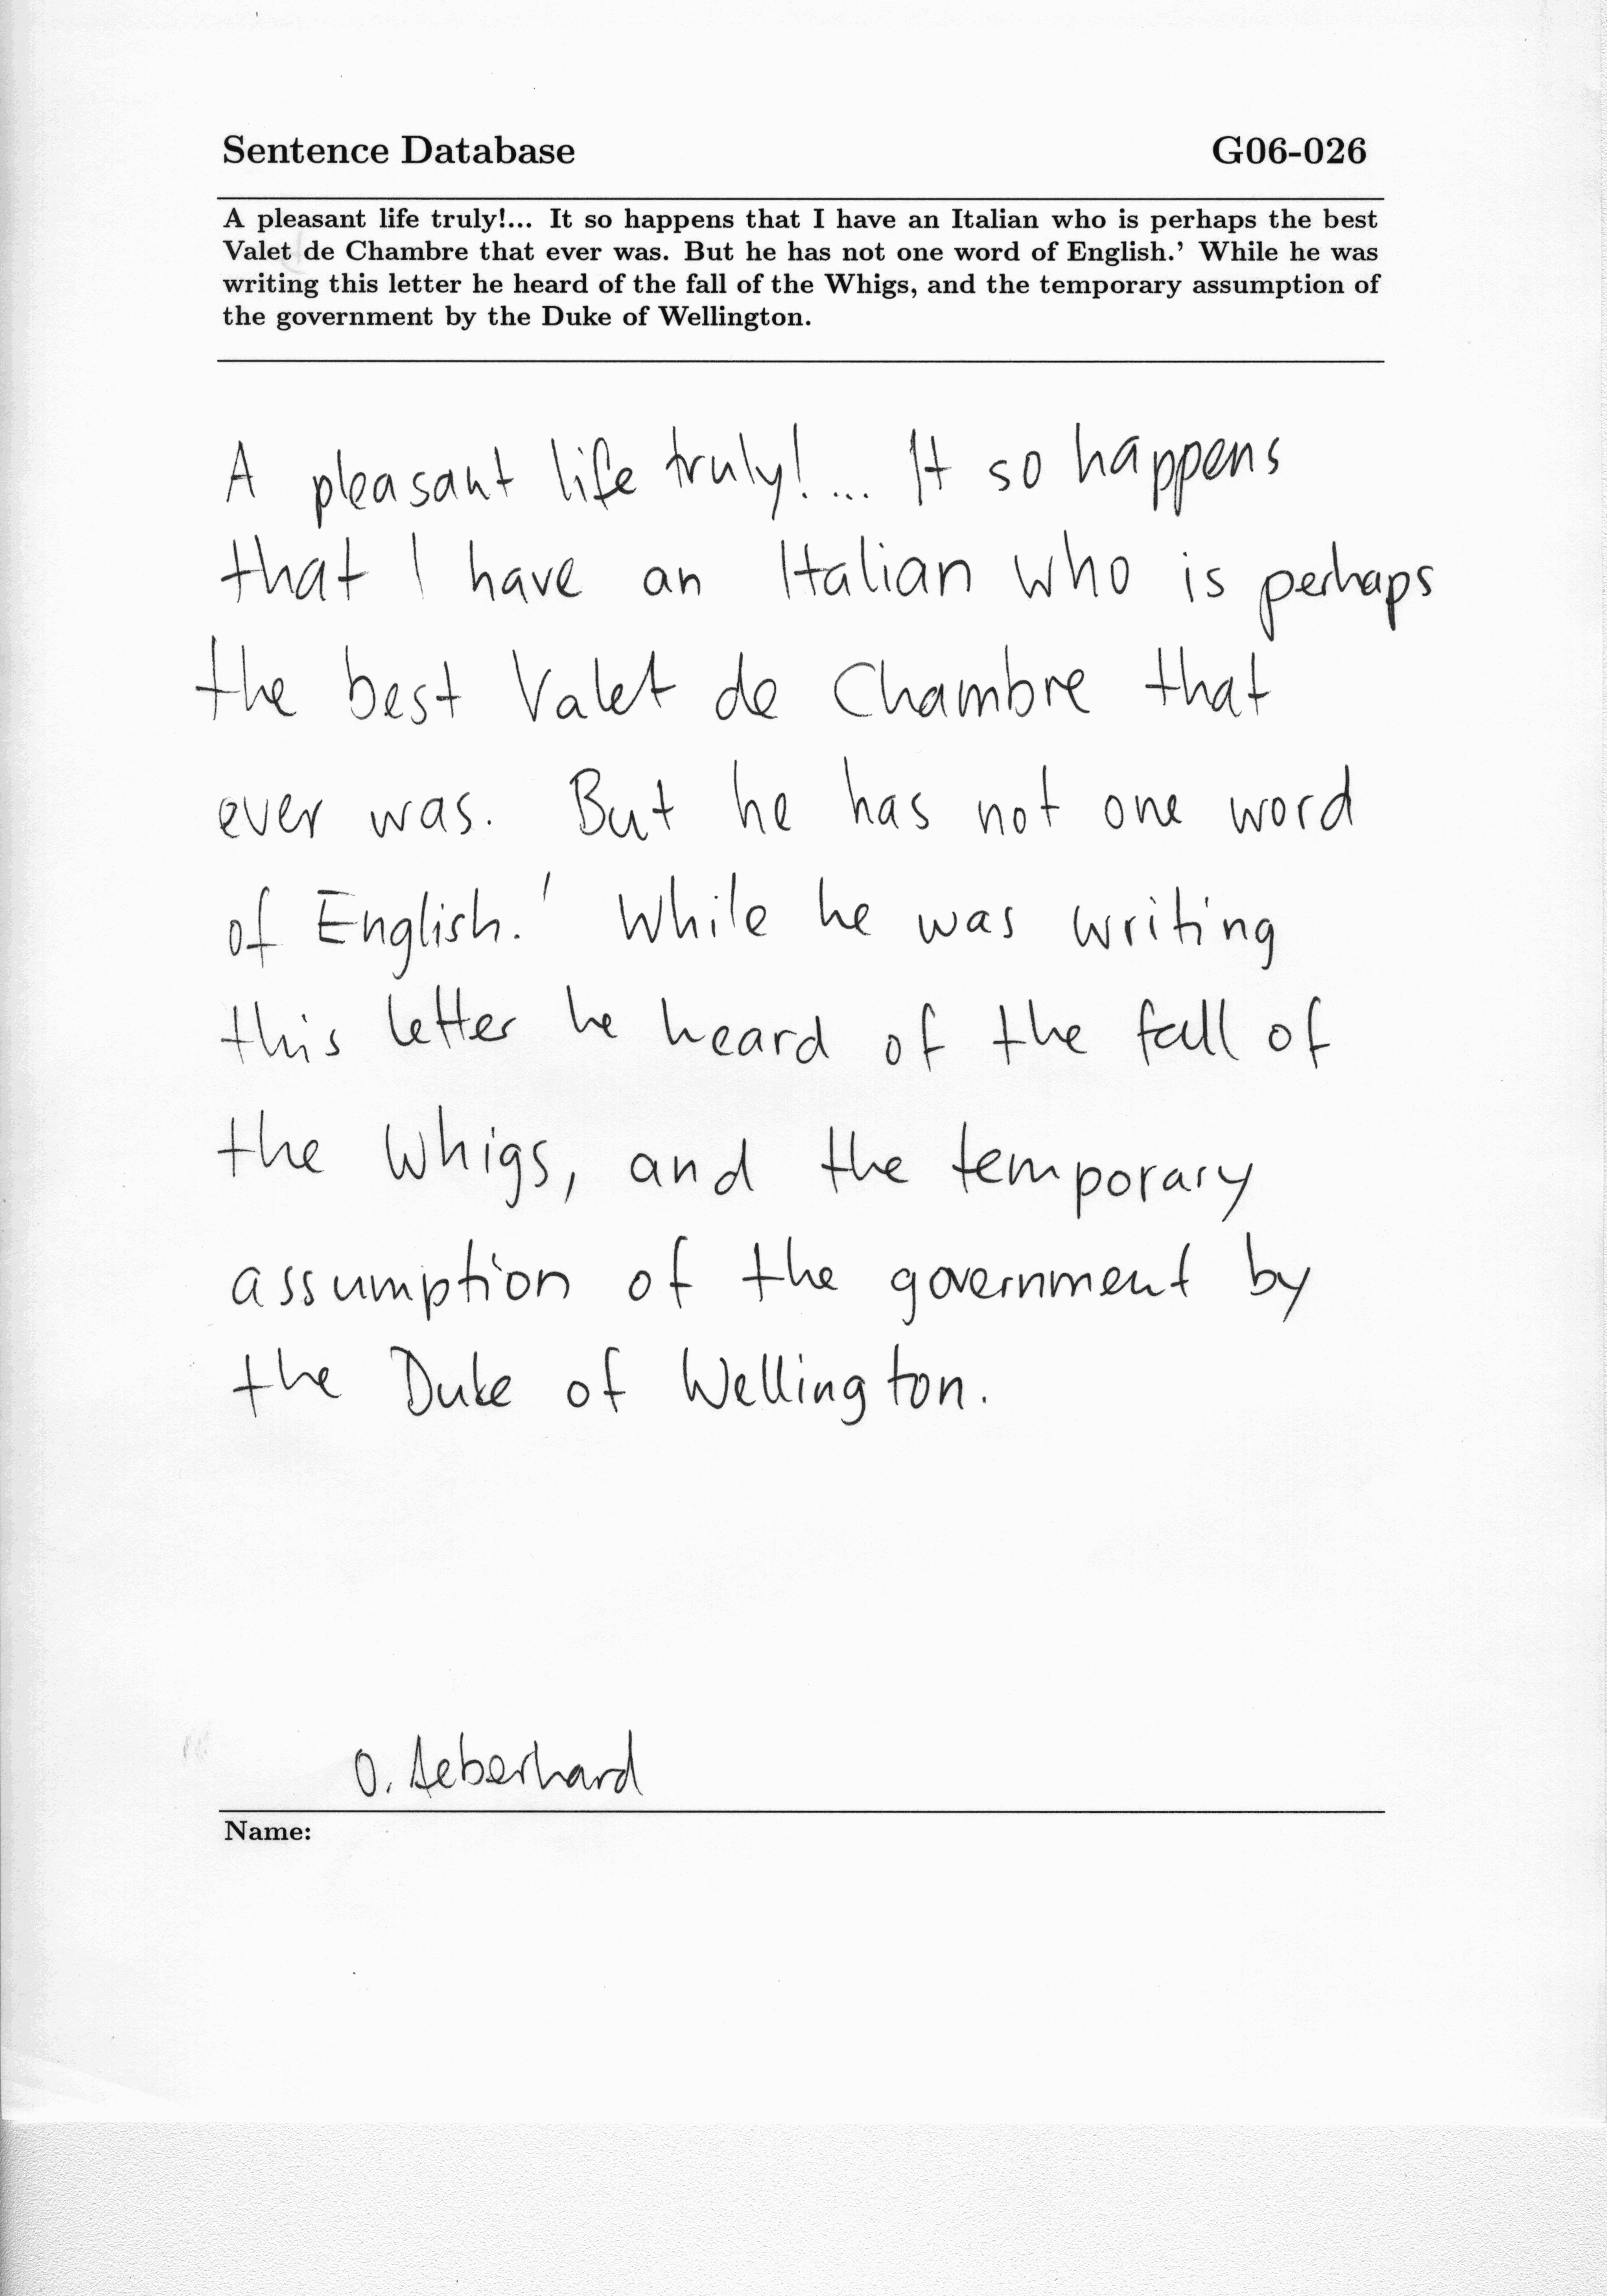 Sentence Database G06-026
A pleasant life truly!... It so happens that I have an Italian who is perhaps the best
Valet de Chambre that ever was. But he has not one word of English.’ While he was
writing this letter he heard of the fall of the Whigs, and the temporary assumption of
the government by the Duke of Wellington.
A pleasant life truly!... It so happens
that I have an Italian who is perhaps
the best Valet de Chambre that
ever was. But he has not one word
of English.' While he was writing
this letter he heard of the fall of
the Whigs, and the temporary
assumption of the government by
the Duke of Wellington.
O. Aeberhard
Name: